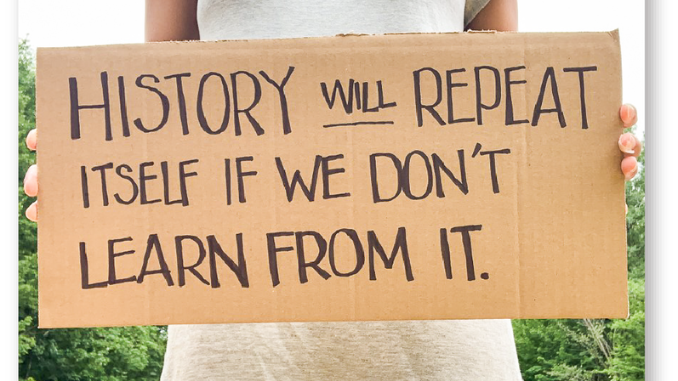 HISTORY WILL REPEAT
ITSELF IF WE DON'T
LEARN FROM IT.